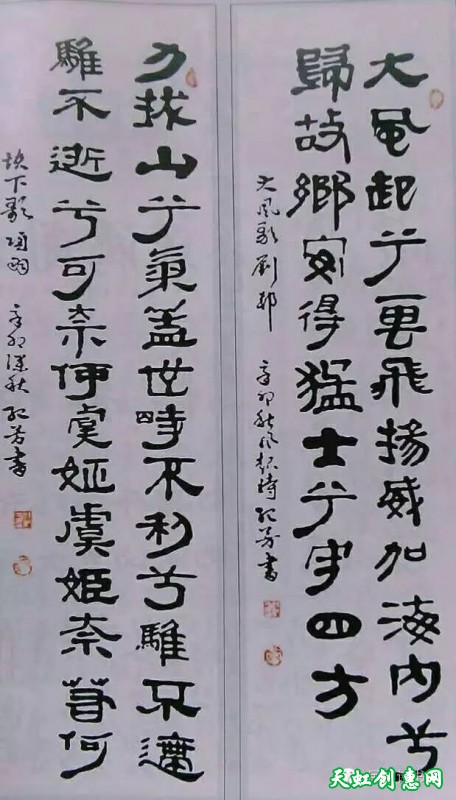 大風起兮雲飛揚威加海内兮
歸故鄉安得猛士兮守四方
大風歌劉邦 辛卯秋風起時 書
力拔山兮氣蓋世時不利兮騅不逝
騅不逝兮可奈何虞姬虞姬奈若何
垓下歌 項羽 辛卯深秋 書
天虹创惠网